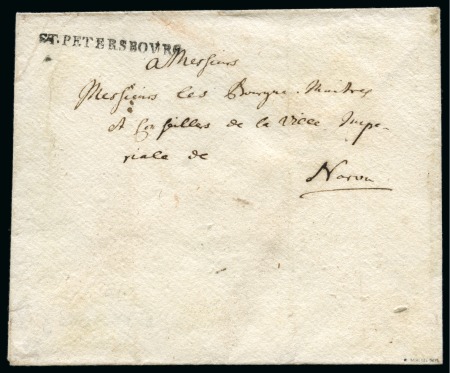 ST.PETERSBOURG
a Messieurs
Messieurs les Bourgue-Maitres
et Conseillers de la Ville Impe-
riale de
Narva